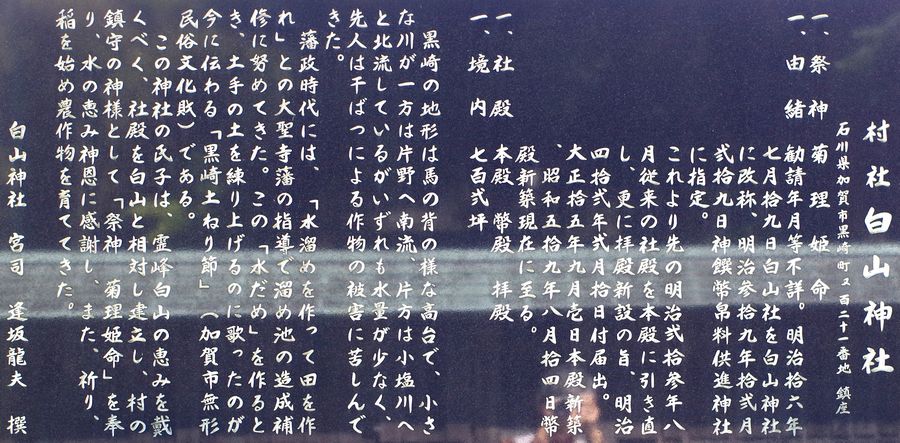 村社白山神社
石川県加賀市黒崎町ヌ百二十一番地 鎮座
一、祭神 菊理姫命
一、由緒 勧請年月等不詳。明治拾六年
七月拾九日白山社を白山神社
に改称、明治参拾九年弐月
弐拾九日神饌幣帛料供進神社
に指定。
これより先の明治弐拾参年八
月従来の社殿を本殿に引き直
し、更に拝殿新設の旨、明治
四拾弐年弐月拾日付届出。
大正拾五年九月壱日本殿新築
、昭和五十九年八月十四日幣
殿新築現在に至る。
一、社殿 本殿 幣殿 拝殿
一、境内 七百弐坪
黒崎の地形は馬の背の様な高台で、小さ
な川が一方は片野へ南流、片方は小塩川へ
と北流しているがいずれも水量が少なく、
先人は干ばつによる作物の被害に苦しんで
きた。
藩政時代には、「水溜めを作って田を作
れ」との大聖寺藩の指導で溜め池の造成補
修に努めてきた。この「水だめ」を作ると
き、土手の土を練り上げるのに歌ったのが
今に伝わる「黒崎土ねり節」(加賀市無形
民俗文化財)である。
この神社の氏子は、霊峰白山の恵みを戴
くべく、社殿を白山と相対し建立し、村の
鎮守の神様として「祭神 菊理姫命」を奉
り、水の恵み神恩に感謝し、また、祈り、
稲を始め農作物を育ててきた。
白山神社 宮司 逢坂龍夫 撰